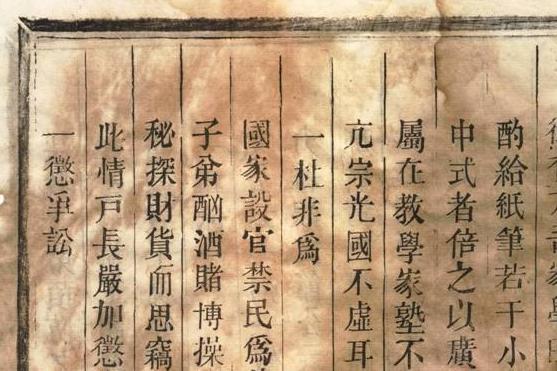 酌給紙筆若干小
中式者倍之以廣
屬在教學家塾不
亢宗光國不虛耳
一杜非為
國家設官禁民為
子弟酗酒賭博操
秘探財貨而思竊
此情戸長嚴加懲
一懲爭訟